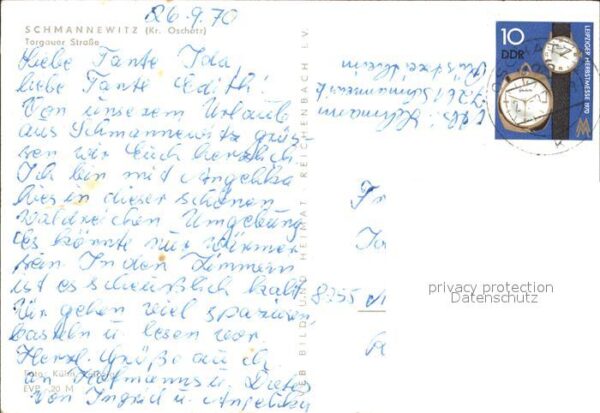 26.9.70
SCHMANNEWITZ (Kr. Oschatz)
Torgauer Straße
Liebe Tante Ida,
liebe Tante Edith!
Von unserem Urlaub
aus Schmannewitz grüs-
sen wir Euch herzlich.
Ich bin mit Angelika
hier in dieser schönen
waldreichen Umgebung
es könnte nur wärmer
sein. In den Zimmern
ist es scheußlich kalt
Wir gehen viel spazieren,
basteln u. lesen vor
Herzl. Grüße auch
an Hofmanns u. Dieter
von Ingrid u. Angelika
Foto: Kühn
EVP 20 M
VEB BILD UND HEIMAT REICHENBACH I. V.
7261 Schmannewitz
10
DDR
LEIPZIGER HERBSTMESSE 1970
Fr
8255
privacy protection
Datenschutz